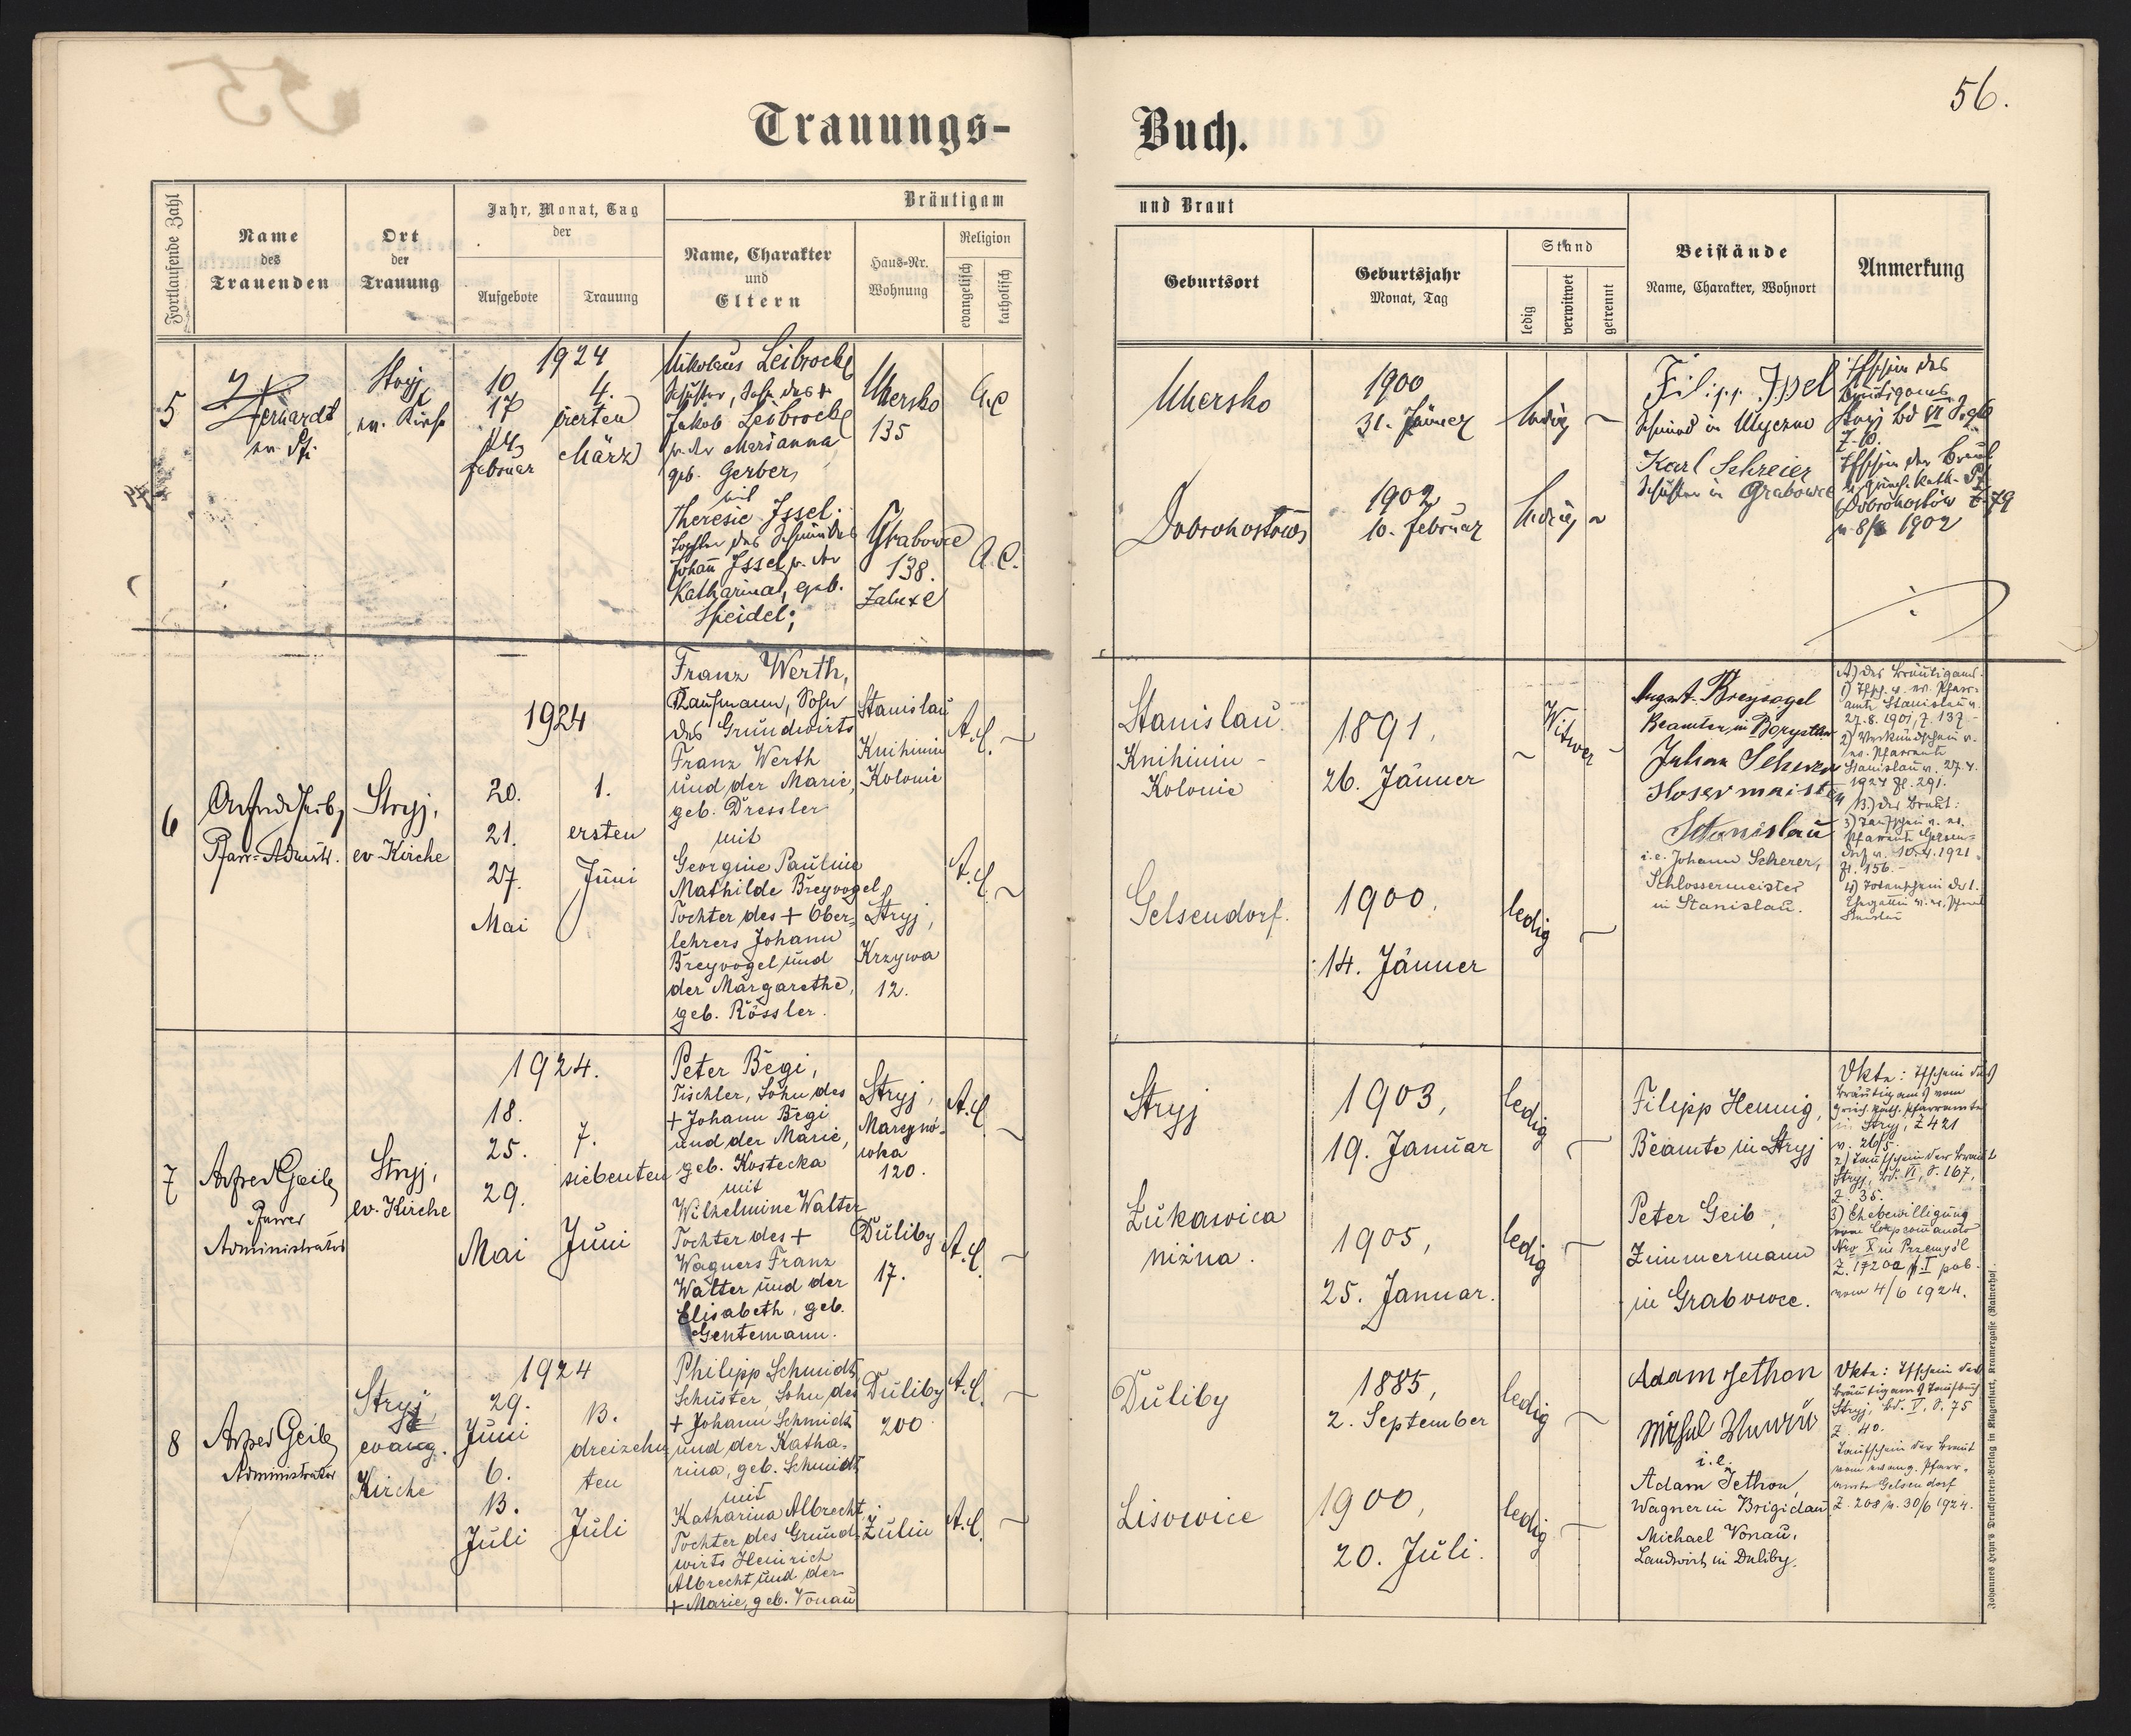 56.
Trauungs-
Buch.
Fortlaufende Zahl
Name
des
Trauenden
Ort
der
Trauung
Jahr, Monat, Tag
der
Aufgebote
Trauung
Bräutigam
Name, Charakter
und
Eltern
Haus-Nr.
Wohnung
Religion
evangelisch
katholisch
und Braut
Geburtsort
Geburtsjahr
Monat, Tag
Stand
ledig
verwitwet
getrennt
Beistände
Name, Charakter, Wohnort
Anmerkung
5
Stryj
ev. Kirche
1924
10
17
24
Februar
4.
vierten
März
Nikolaus Leibrock
Schuster, Sohn des +
Jakob Leibrock
u. der Marianna
geb. Gerber,
mit
Theresie Issel:
Tochter des Schmiedes
Johann Issel u. der
Katharina, geb.
Speidel;
Uhersko
135
Grabowce
138.
A.C.
A.C.
Uhersko
1900
31. Jänner
ledig
Dobrohostów
1902
10. Februar
ledig
Filipp Issel
Schmied in
Karl Schreier
Schuster in Grabowce
Tfschein des
Bräutigams
Stryj Bd VI
Tfschein der Braut
Dobrohostów
1902
6
Pfarr-Admstr.
Stryj,
ev Kirche
1924
20.
21.
27.
Mai
1.
ersten
Juni
Franz Werth,
Kaufmann, Sohn
des Grundwirts
Franz Werth
und der Marie,
geb. Dressler
mit
Georgine Pauline
Mathilde Breyvogel,
Tochter des + Ober-
lehrers Johann
Breyvogel und
der Margarethe,
geb. Rössler.
Stanislau
Knihinin
Kolonie
Stryj,
Krzywa
12.
A.C.
A.C.
Stanislau
Knihinin -
Kolonie
1891,
26. Jänner
Witwer
Gelsendorf.
1900.
14. Jänner
ledig
August Breyvogel
Beamter in Boryslaw
Johan Scherer
Stanislau
i.e. Johann Scherer,
Schlossermeister
in Stanislau.
A.) des Bräutigams
27.8.1901, Z. 137
Stanislau v. 27.4.
1924 Zl. 291.
B.) der Braut:
10.4.1921
Zl. 156.
7
Alfred Geib
Pfarrer
Administrator
Stryj,
ev. Kirche
1924.
18.
25.
29.
Mai
7.
siebenten
Juni
Peter Begi,
Tischler, Sohn des
+ Johann Begi
und der Marie,
geb. Kostecka
mit
Wilhelmine Walter
Tochter des +
Wagners Franz
Walter und der
Elisabeth, geb.
Gentemann.
Stryj,
120.
Duliby
17.
A.C.
A.C.
Stryj
1903,
19. Januar
ledig
Żukawica
niżna.
1905,
25. Januar.
ledig
Filipp Hennig,
Beamte in Stryj
Peter Geib,
Zimmermann
in Grabowce.
Vkte: Tfschein des
Bräutigams vom
griech. kath. Pfarramte
in Stryj, Z 421
2) Taufschein der Braut
Stryj, Bd. VI, S. 167,
Z. 35.
3) Ehebewilligung
Nro X in Przemysl
vom 4/6 1924.
8
Alfred Geib
Administrator
Stryj,
evang.
Kirche
1924
29.
Juni
6.
13.
Juli
13.
dreizehn-
ten
Juli
Philipp Schmidt,
Schuster, Sohn des
+ Johann Schmidt
und der Katha-
rina, geb. Schmidt
mit
Katharina Albrecht
Tochter des Grund-
wirts Heinrich
Albrecht und der
+ Marie, geb. Vonau
Duliby
200
Żulin
A.C.
A.C.
Duliby
1885,
2. September
ledig
Lisowice
1900,
20. Juli.
ledig
Adam Jethon
i.e.
Adam Jethon,
Wagner in Brigidau
Michael Vonau,
Landwirt in Duliby.
Vkte: Tfschein des
Bräutigams Taufbuch
Stryj, Bd. V, S. 75
Z. 40.
Taufschein der Braut
vom evang. Pfarr-
amte Gelsendorf
Z. 208 v. 30/6 1924.
Johannes Heyn's Drucksorten-Verlag in Klagenfurt, Kramergasse (Rainerhof.